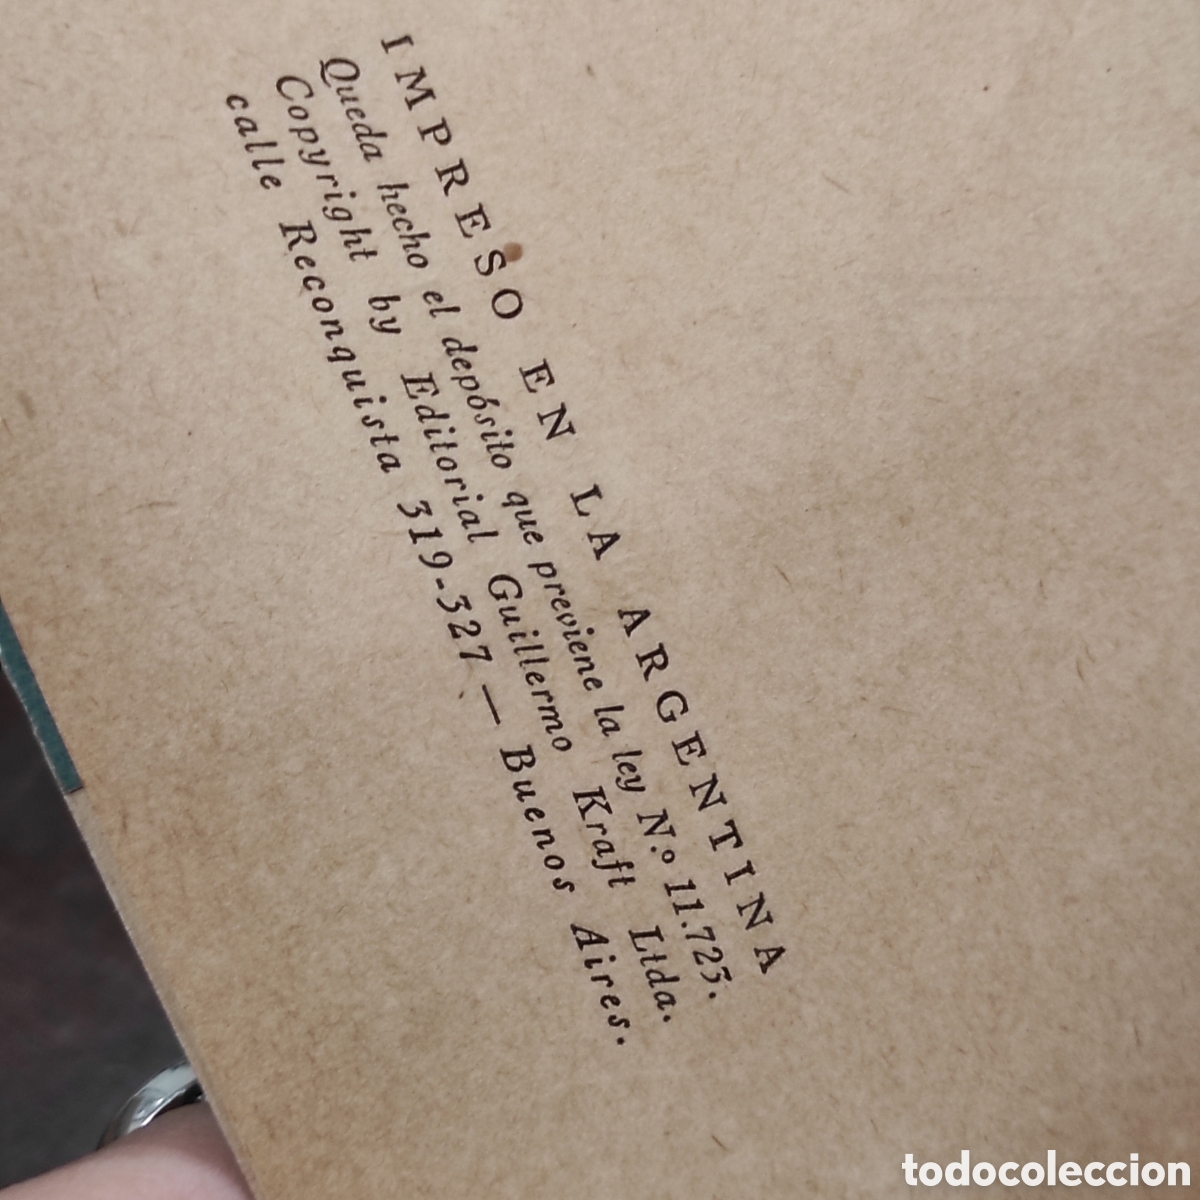 IMPRESO EN LA ARGENTINA
Queda hecho el depósito que previene la ley N.º 11.723.
Copyright by Editorial Guillermo Kraft Ltda.
calle Reconquista 319-327 — Buenos Aires.
todocoleccion